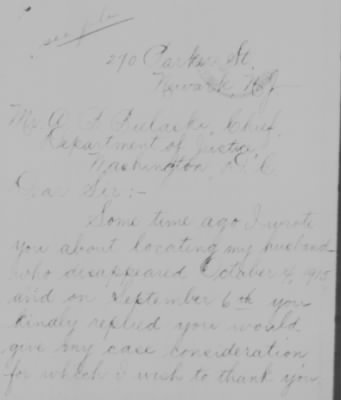 270 Parker St.
Newark, N.J.
Mr. A. Bielaski, Chief,
Department of Justice,
Washington, D.C.
Dear Sir:-
Some time ago I wrote
you about locating my husband
who disappeared October 4, 1915
and on September 6th you
kindly replied you would
give my case consideration
for which I wish to thank you